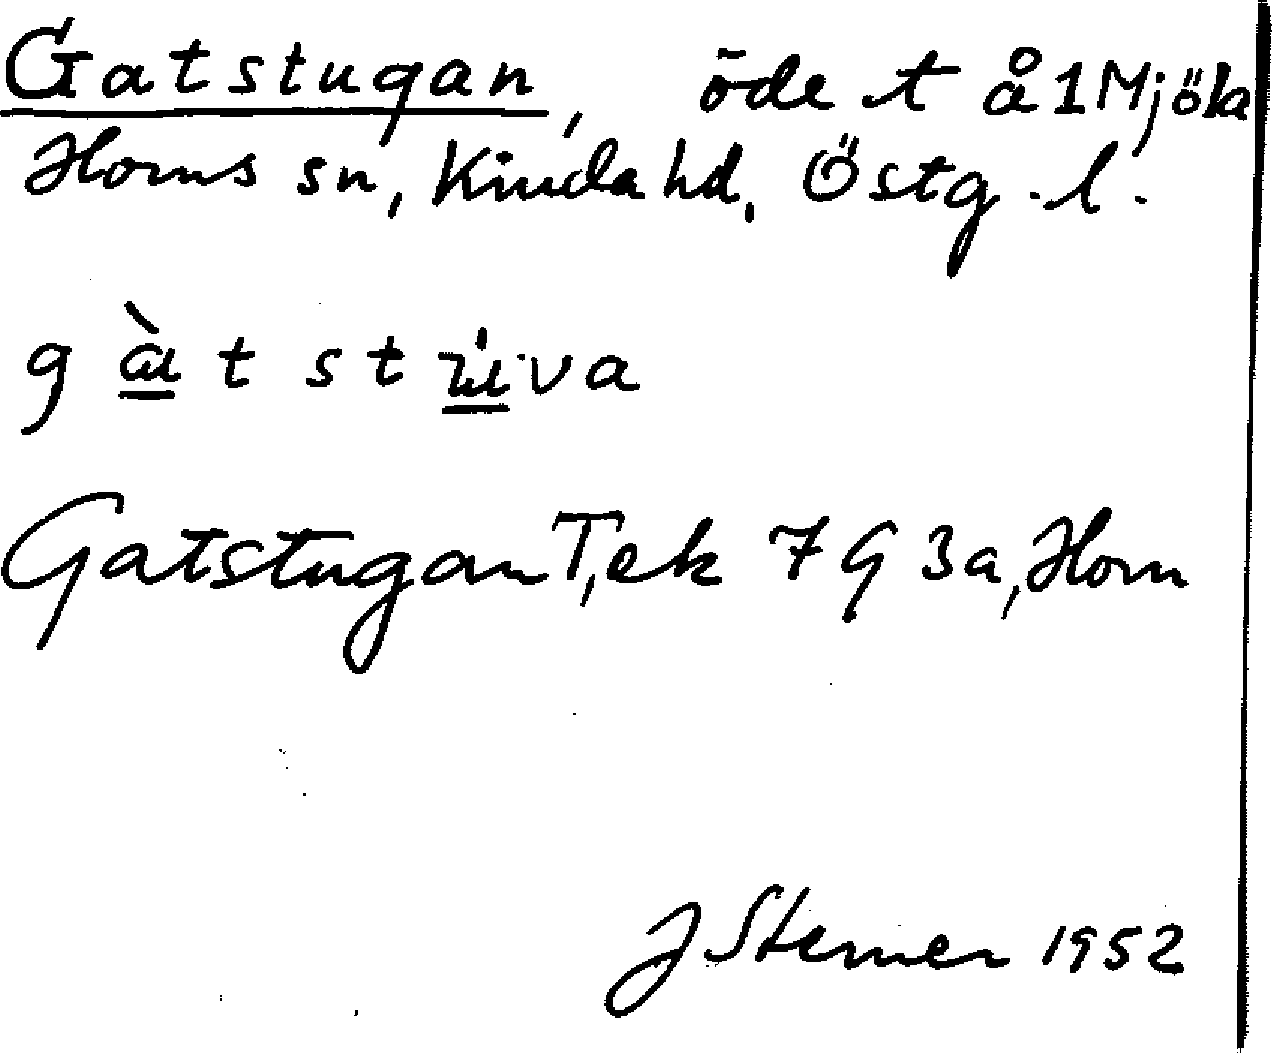 Gatstugan, öde t å 1 Mjöla
Horns sn, Kinda hd, Östg. l.
g à t s t u̇ v a
Gatstugan T, ek 7G 3a, Horn
J Sterner 1952